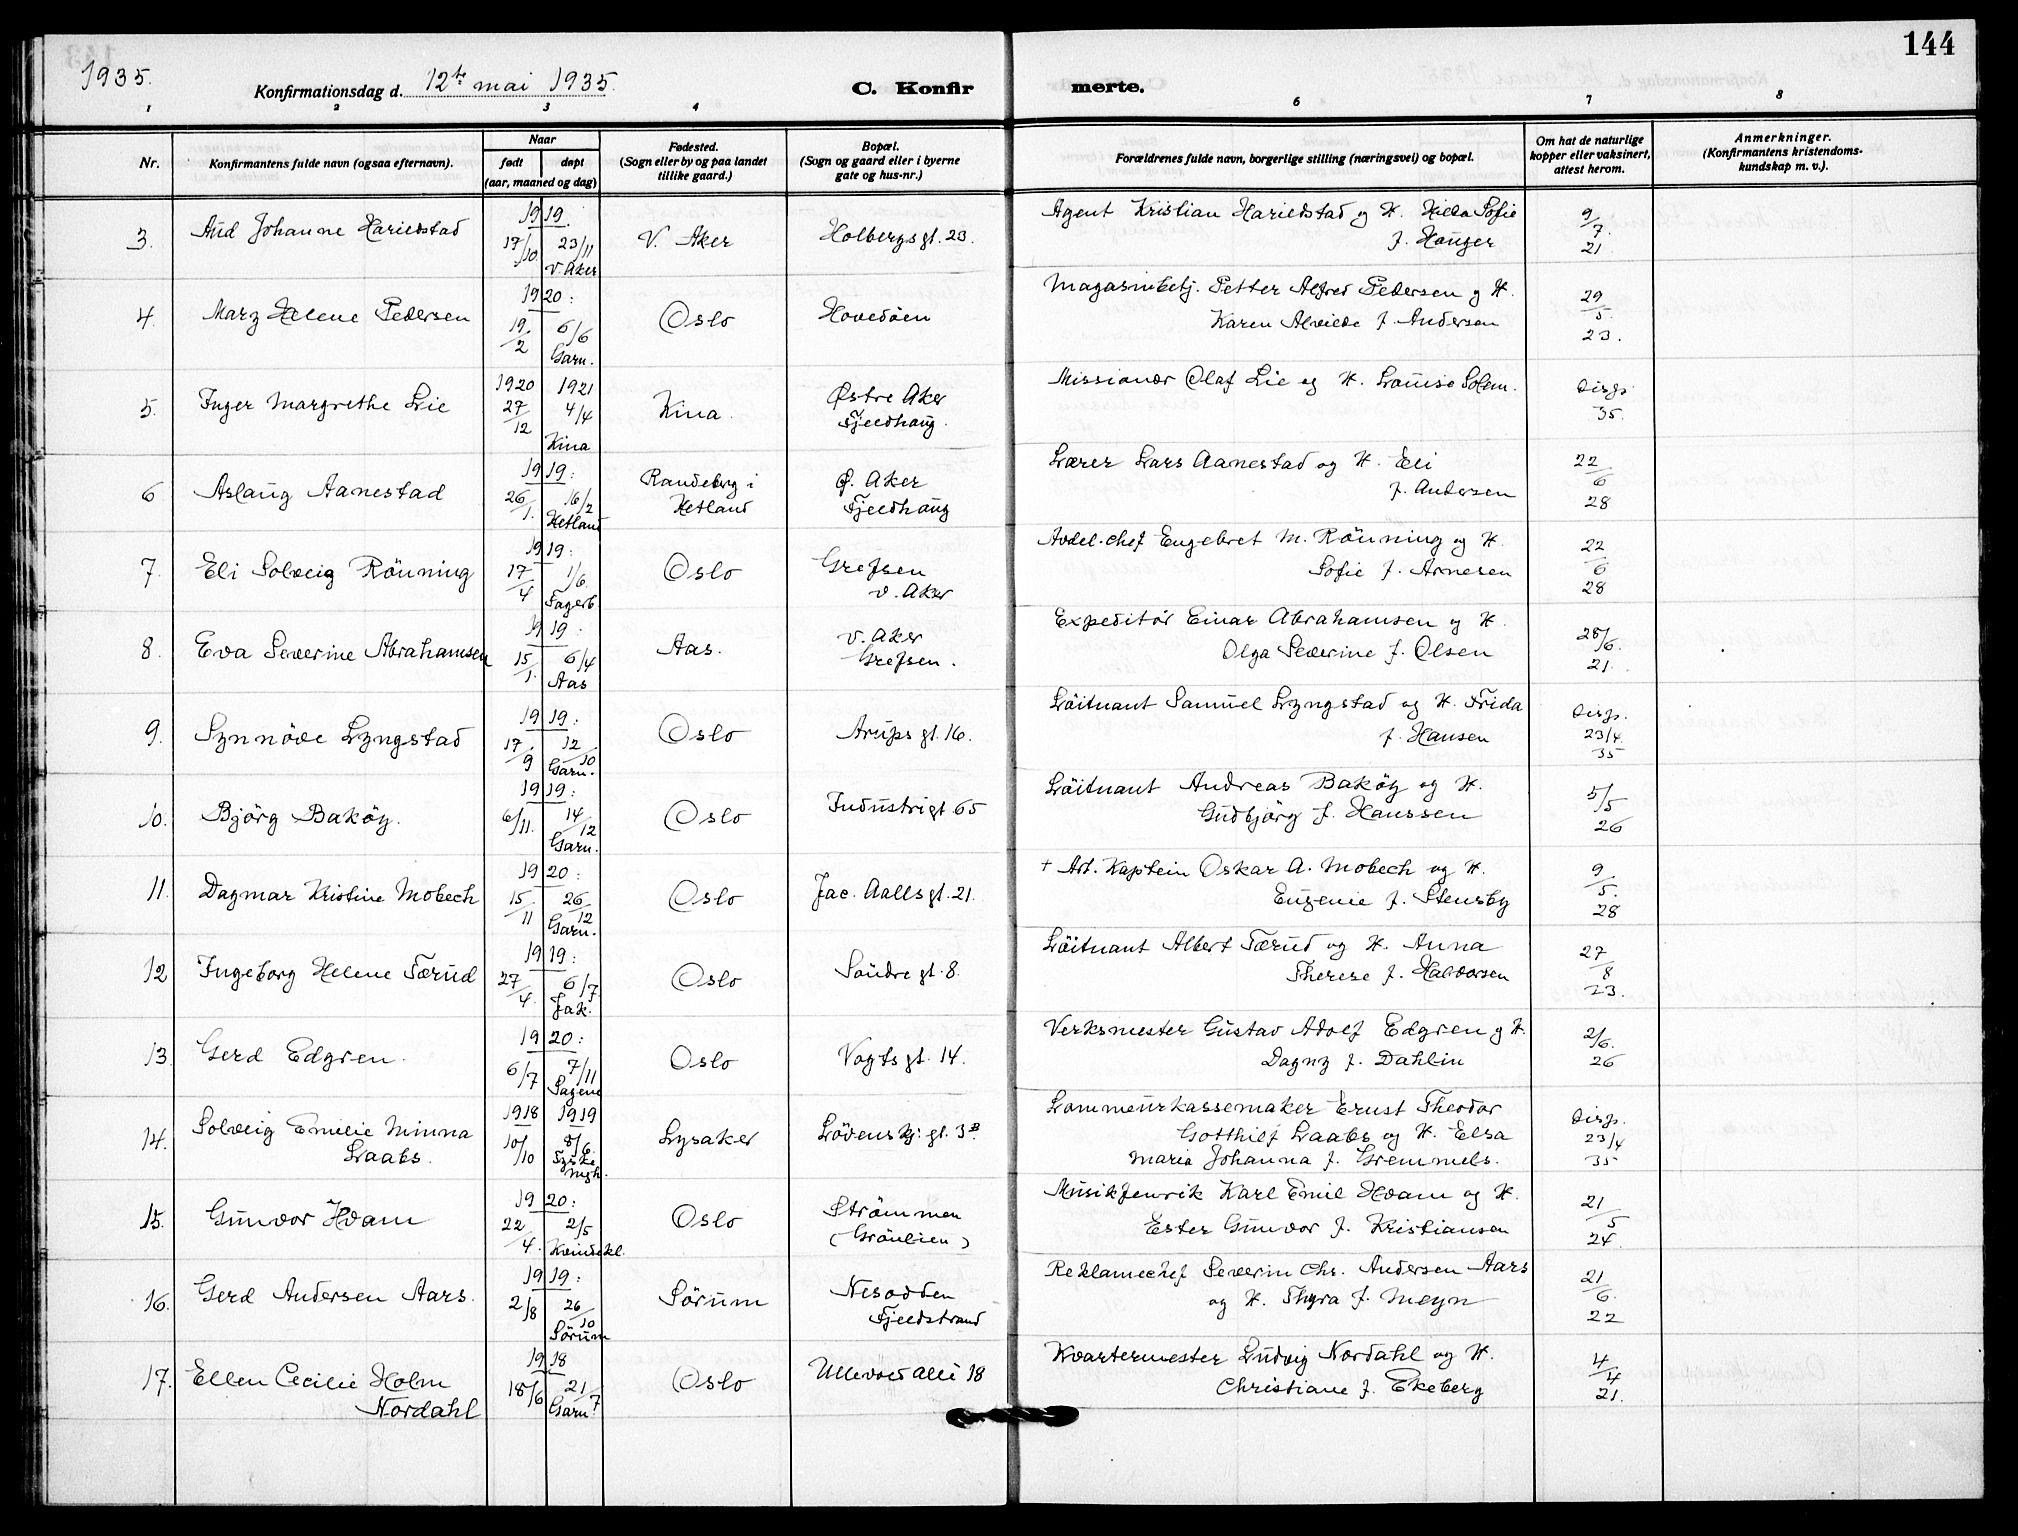 144
1935.
Konfirmationsdag d. 12te mai 1935.
C. Konfirmerte.
1 2 3 4 5 6 7 8
Nr.
Konfirmantens fulde navn (ogsaa efternavn).
Naar
født døpt
(aar, maaned og dag)
Fødested.
(Sogn eller by og paa landet
tillike gaard.)
Bopæl.
(Sogn og gaard eller i byerne
gate og hus-nr.)
Forældrenes fulde navn, borgerlige stilling (næringsvei) og bopæl.
Om hat de naturlige
kopper eller vaksinert,
attest herom.
Anmerkninger.
(Konfirmantens kristendoms-
kundskap m. v.).
3. Aud Johanne Harildstad 1919. 17/10 23/11 V. Aker V. Aker Holbergs gt. 23.
Agent Kristian Harildstad og H. Hilda Sofie
f. Hauger 9/7. 21
4. Mary Helene Pedersen 1920: 19/2 6/6 Garn. Oslo Hovedöen
Magasinbetj. Petter Alfred Pedersen og H.
Karen Alvilde f. Andersen 29/5. 23.
5. Inger Margrethe Lie 1920 27/12 1921 4/4 Kina Kina. Østre Aker
Fjeldhaug.
Missionær Olaf Lie og H. Louise Solem. disp. 35.
6 Aslaug Aanestad 1919: 26/1. 16/2 Hetland Randeberg i
Hetland Ø. Aker
Fjeldhaug
Lærer Lars Aanestad og H. Eli
f. Andersen 22/6 28
7. Eli Solveig Rönning 1919: 17/4 1/6. Fagerb. Oslo Grefsen
V. Aker
Avdel.chef Engebret M. Rönning og H.
Sofie f. Arnesen 22/6 28
8. Eva Severine Abrahamsen 1919: 15/1. 6/4 Aas Aas. V. Aker
Grefsen.
Expeditör Einar Abrahamsen og H.
Olga Severine f. Olsen 28/6. 21.
9. Synnöve Lyngstad 1919: 17/9 12/10 Garn. Oslo Arups gt. 16.
Löitnant Samuel Lyngstad og H. Frida
f. Hansen disp. 23/4. 35
10. Björg Baköy. 1919: 6/11. 14/12 Garn. Oslo Industrigt 65
Löitnant Andreas Baköy og H.
Gudbjörg f. Hanssen 5/5 26
11. Dagmar Kristine Mobech 1920: 15/11 26/12 Garn. Oslo Jac. Aalls gt. 21.
+ Art. Kaptein Oskar A. Mobech og H.
Eugenie f. Stensby 9/5. 28
12 Ingeborg Helene Tærud 1919: 27/4. 6/7 Jak. Oslo Söndre gt. 8.
Löitnant Albert Tærud og H. Anna
Therese f. Halvorsen 27/8 23.
13. Gerd Edgren. 1920: 6/7 7/11 Sagene Oslo Vogts gt. 14.
Verksmester Gustav Adolf Edgren og H.
Dagny f. Dahlin 2/6. 26
14. Solveig Emilie Minna
Laabs. 1918 10/10 1919 8/6. Tyske mgh. Lysaker Lövenskj. gt. 3B.
Lommeurkassemaker Ernst Theodor
Gotthilf Laabs og H. Elsa
Maria Johanna f. Gremmels. disp. 23/4 35
15. Gunvor Hvam 1920: 22/4. 2/5 Oslo Strömmen
(Grönlien)
Musikfenrik Karl Emil Hvam og H.
Ester Gunvor f. Kristiansen 21/5 24.
16. Gerd Andersen Aars. 1919: 2/8 26/10 Sörum Sörum Nesodden
Fjeldstrand
Reklamechef Severin Chr. Andersen Aars
og H. Thyra f. Meyn 21/6. 22
17. Ellen Cecilie Holm
Nordahl 1918 18/6 21/7 Garn. Oslo Ullevold alle 18
Kvartermester Ludvig Nordahl og H.
Christiane f. Ekeberg 4/4 21.